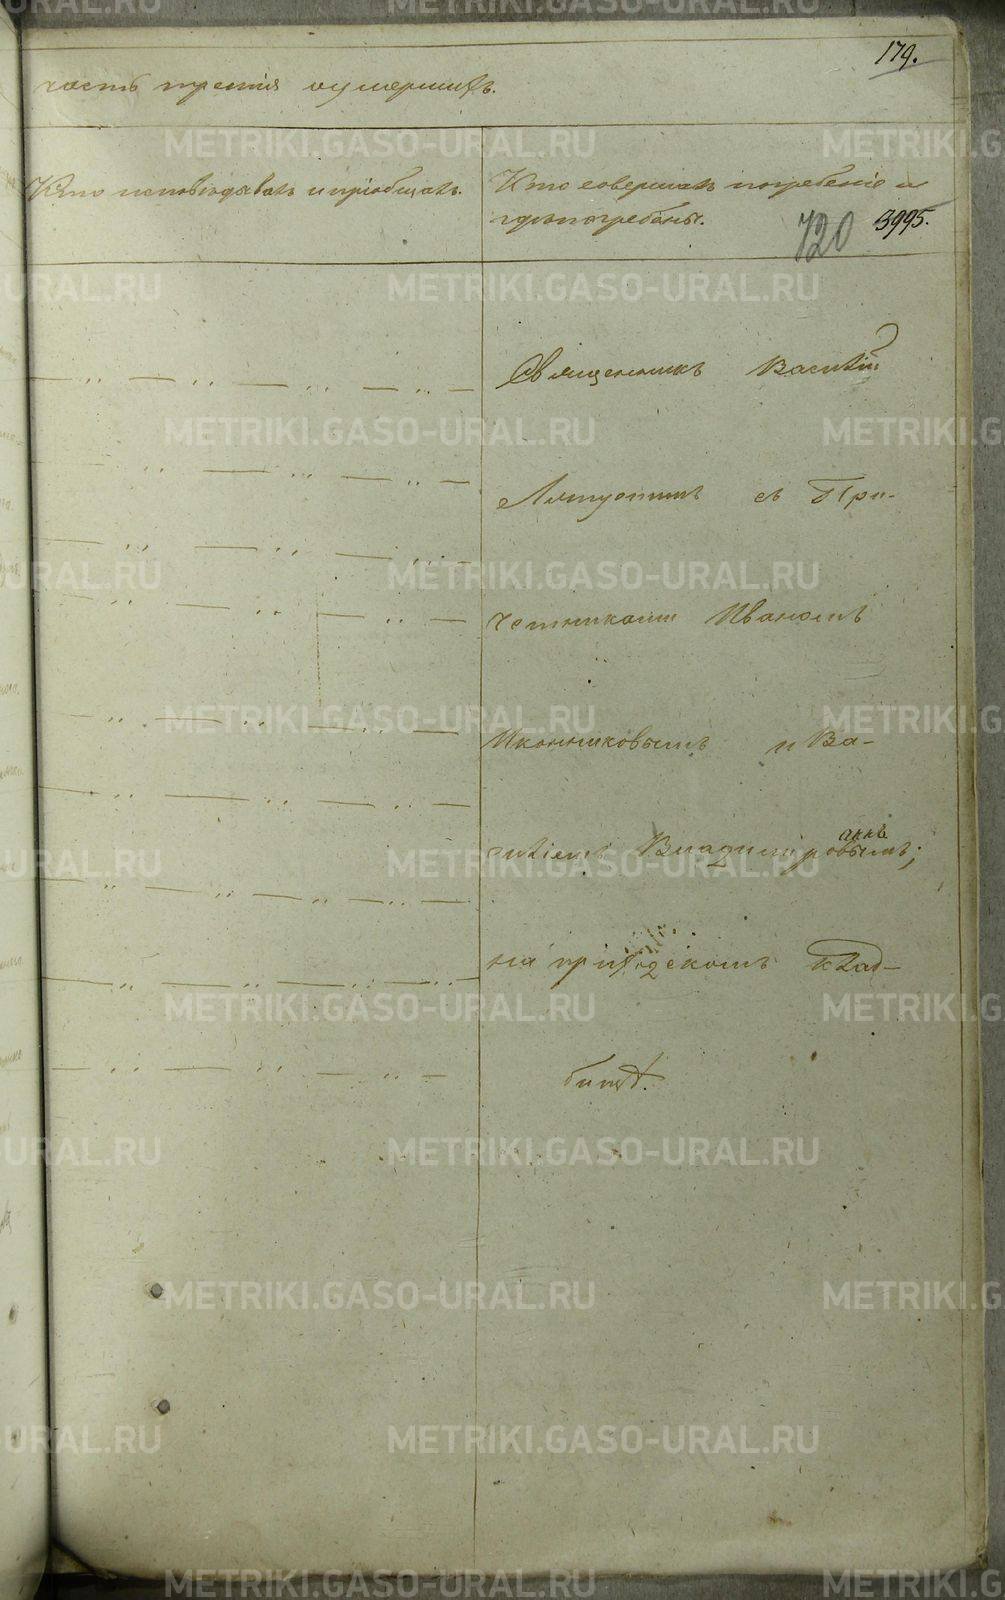 179.
часть третія оумершихъ.
Кто исповѣдывалъ и пріобщалъ.
Кто совершалъ погребеніе и
гдѣ погребены.
720 3995.
Священникъ Василій
съ При-
четниками Иваномъ
Иконниковымъ и Ва-
силіемъ Владиміровымъ;
на приходскомъ клад-
бищѣ.
METRIKI.GASO-URAL.RU